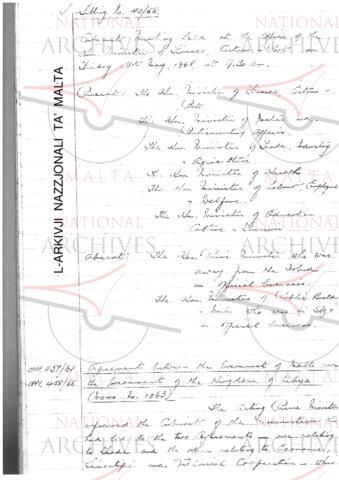 Sitting No. 40/68.
Cabinet Meeting held at the Office of the
Hon. Minister of Finance, Customs & Port on
1968 at 9.30 am.
Present: The Hon. Minister of Finance, Customs &
Port
The Hon. Minister of Justice and
Parliamentary Affairs.
The Hon. Minister of Trade, Industry
& Agriculture
The Hon. Minister of Health
The Hon. Minister of Labour, Employment
& Welfare.
The Hon. Minister of Education
Culture & Tourism
Absent: The Hon. Prime Minister who was
away from the Island
on official business.
The Hon. Minister of Public Building
& Works who was in
on official business
OPM 237/64
OPM 408/68
Agreements between the Government of Malta and
the Government of the Kingdom of Libya
(Memo. No. 1063)
The Acting Prime Minister
informed the Cabinet of the
the two Agreements - one relating
to Trade and the other relating to Economic,
Scientific and Technical Cooperation - which
L-ARKIVJI NAZZJONALI TA' MALTA
NATIONAL
ARCHIVES
MALTA
NATIONAL
ARCHIVES
MALTA
NATIONAL
ARCHIVES